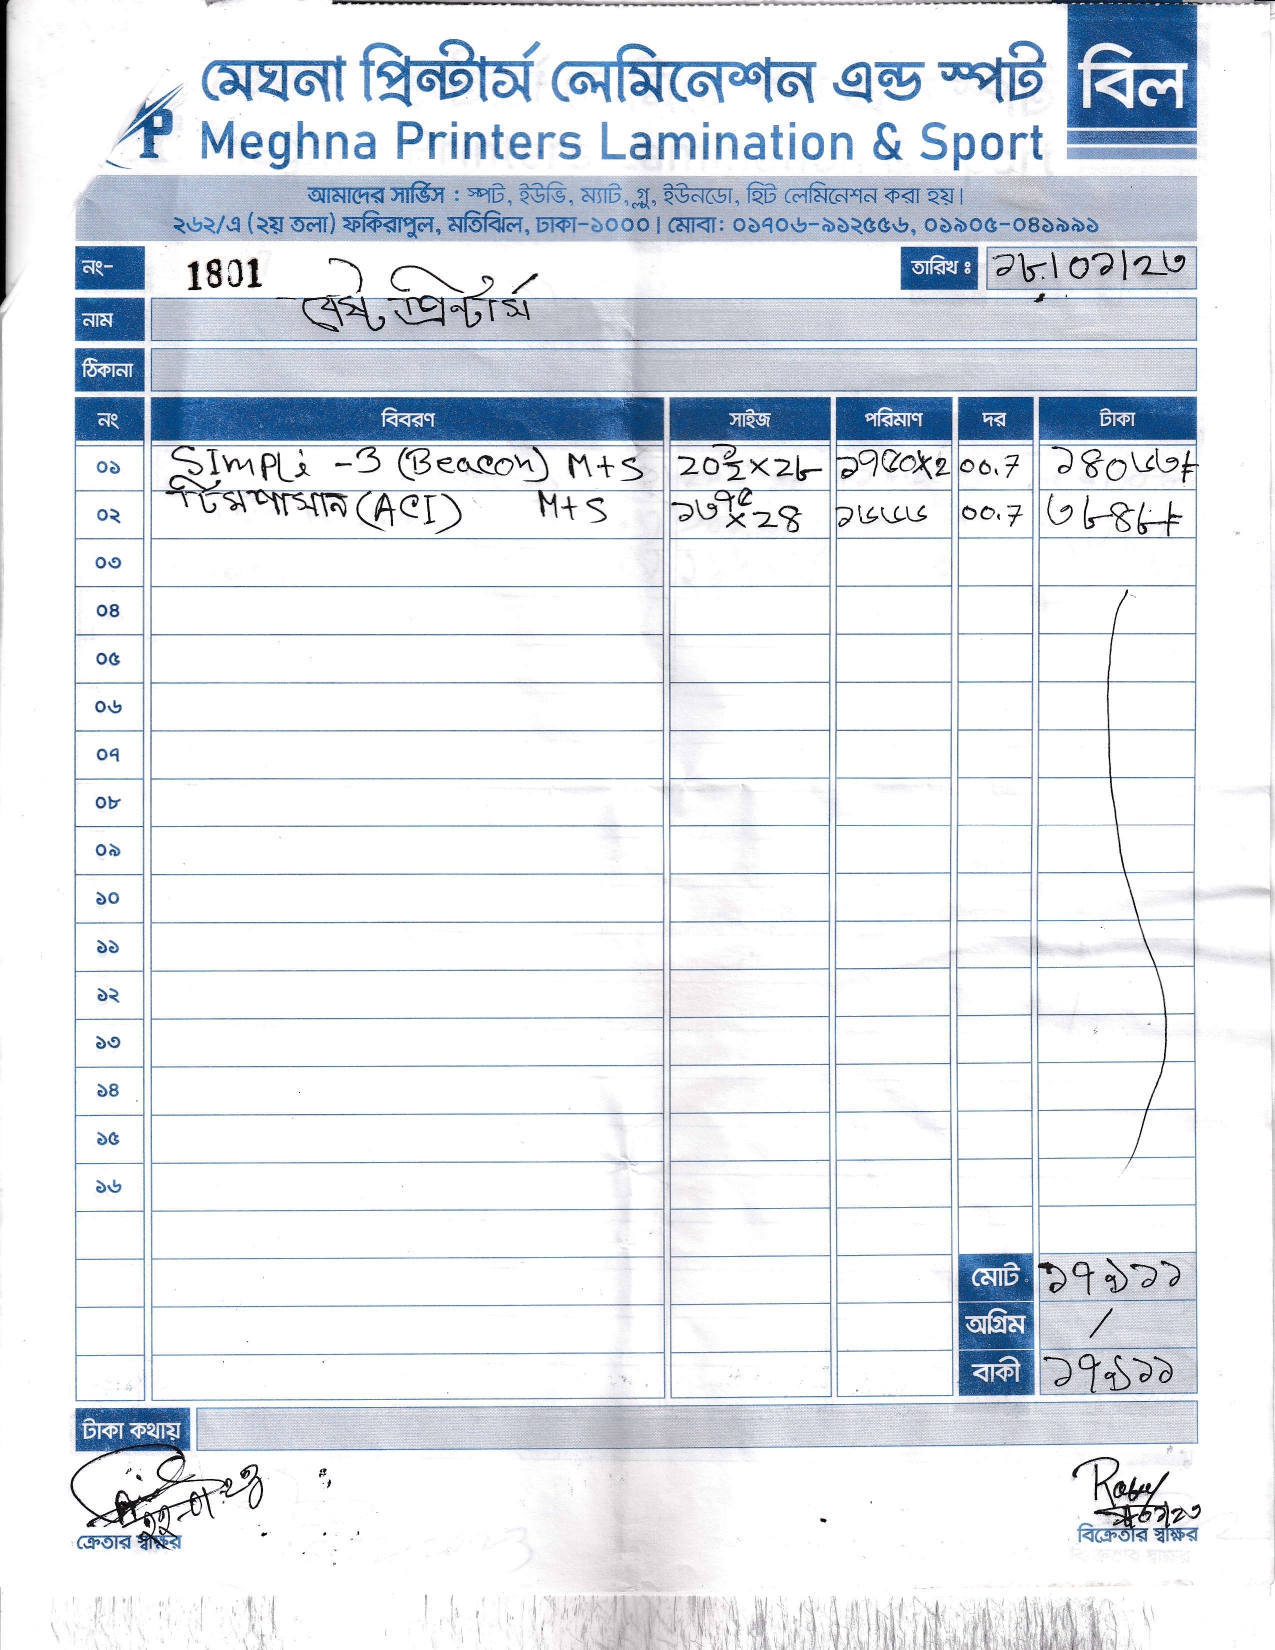 মেঘনা প্রিন্টার্স লেমিনেশন এন্ড স্পট
বিল
P
Meghna Printers Lamination & Sport
আমাদের সার্ভিস : স্পট, ইউভি, ম্যাট, গ্লু, ইউনডো, হিট লেমিনেশন করা হয়।
২৬২/এ (২য় তলা) ফকিরাপুল, মতিঝিল, ঢাকা-১০০০। মোবা: ০১৭০৬-৯১২৫৫৬, ০১৯০৫-০৪১৯৯১
নং- 1801 তারিখ ঃ ১৮/০১/২৩
নাম বেষ্ট প্রিন্টার্স
ঠিকানা
নং বিবরণ সাইজ পরিমাণ দর টাকা
০১ SImpli -3 (Beacon) M+S 20 ১/২ X ২৮ ১৭৫০X2 ০০.7 ১৪০৬৩
০২ (ACI) M+S ১৩৭৫ X 28 ১৬৬৬ ০০.7 ৩৮৪৮
০৩
০৪
০৫
০৬
০৭
০৮
০৯
১০
১১
১২
১৩
১৪
১৫
১৬
মোট ১৭৯১১
অগ্রিম /
বাকী ১৭৯১১
টাকা কথায়
ক্রেতার স্বাক্ষর
বিক্রেতার স্বাক্ষর